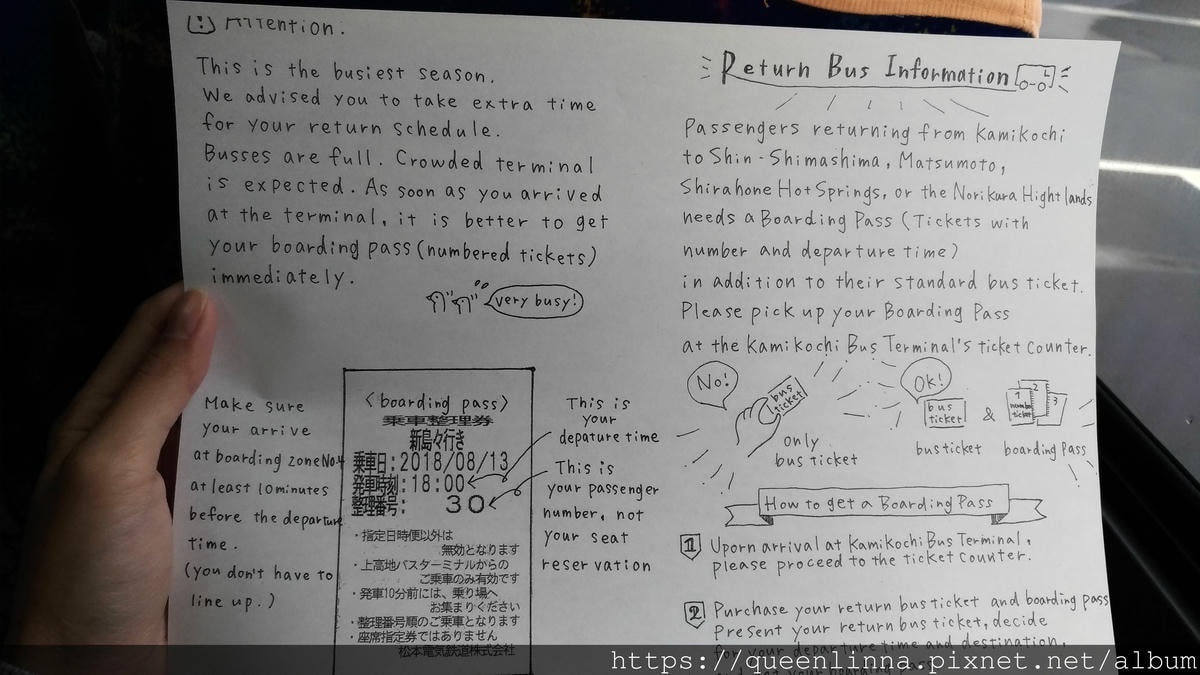 Attention.
This is the busiest season.
We advised you to take extra time
for your return schedule.
Busses are full. Crowded terminal
is expected. As soon as you arrived
at the terminal, it is better to get
your boarding pass (numbered tickets)
immediately.
very busy!
Make sure
your arrive
at boarding zone No.4
at least 10 minutes
before the departure
time.
(you don't have to
line up.)
<boarding pass>
乗車整理券
新島々行き
乗車日:2018/08/13
発車時刻:18:00
整理番号: 30
・指定日時便以外は
無効となります
・上高地バスターミナルからの
ご乗車のみ有効です
・発車10分前には、乗り場へ
お集まりください
・整理番号順のご乗車となります
・座席指定券ではありません
松本電気鉄道株式会社
This is
your
depature time
This is
your passenger
number, not
your seat
reservation
Return Bus Information
Passengers returning from Kamikochi
to Shin-Shimashima, Matsumoto,
Shirahone Hot Springs, or the Norikura Hightlands
needs a Boarding Pass (Tickets with
number and departure time)
in addition to their standard bus ticket.
Please pick up your Boarding Pass
at the Kamikochi Bus Terminal's ticket counter.
No!
bus
ticket
only
bus ticket
Ok!
bus
ticket
&
1
number
ticket
2
3
bus ticket
boarding Pass
How to get a Boarding Pass
1 Uporn arrival at Kamikochi Bus Terminal,
please proceed to the ticket counter.
2 Purchase your return bus ticket and boarding pass
Present your return bus ticket, decide
for your departure time and destination,
https://queenlinna.pixnet.net/album